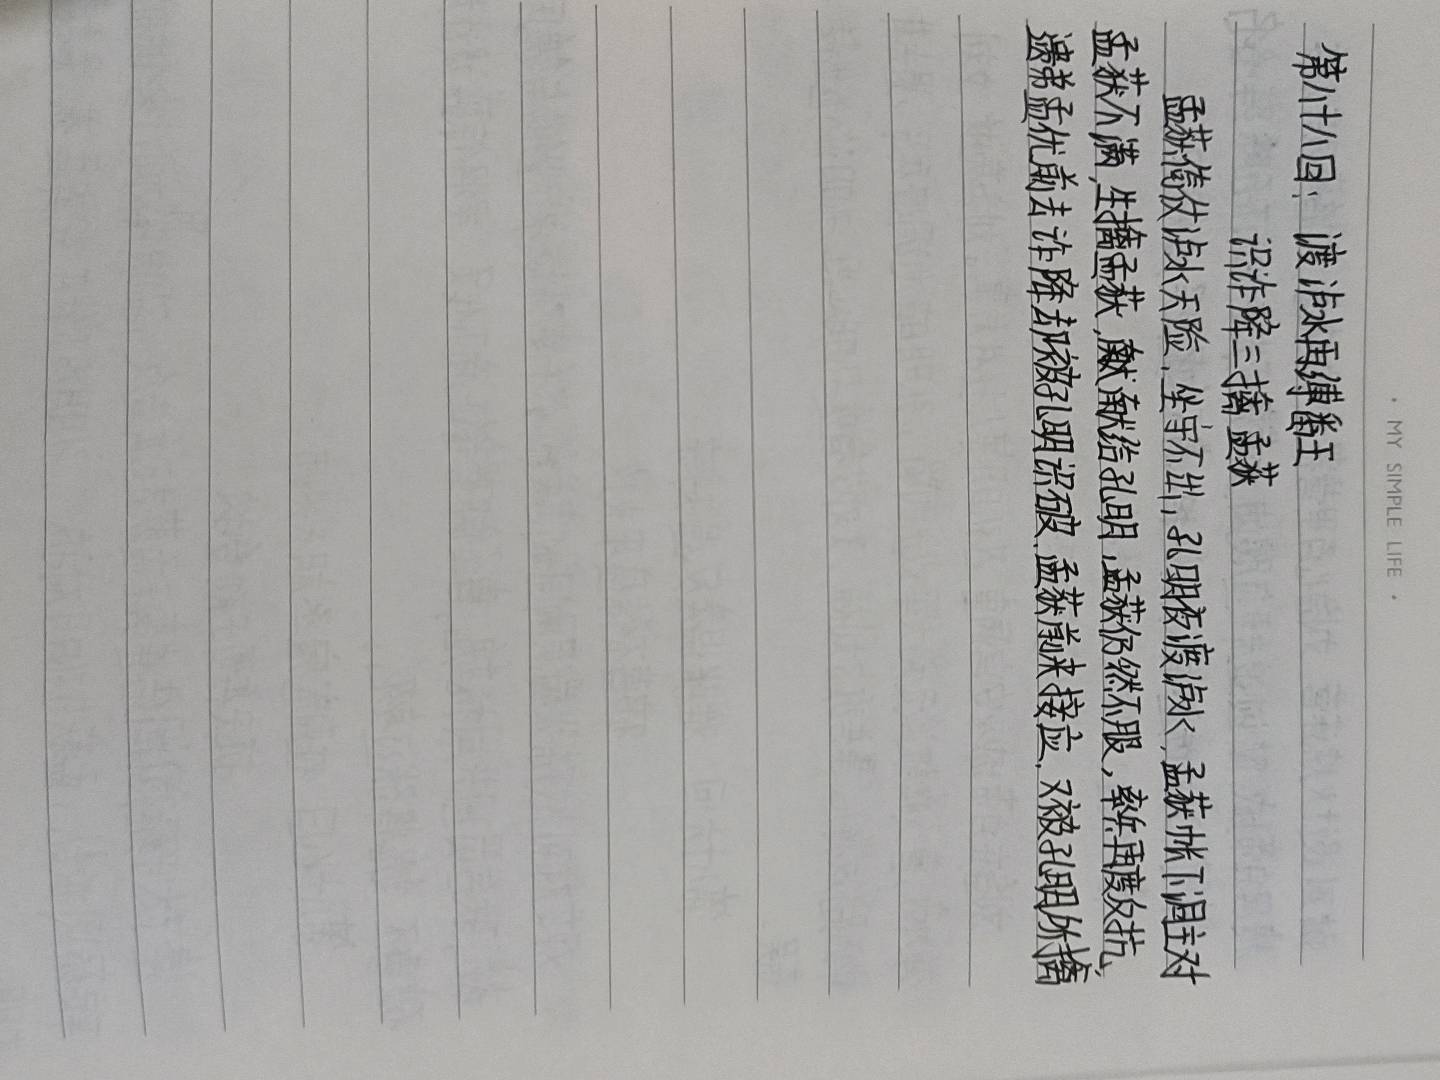 · MY SIMPLE LIFE ·
第八十八回：渡泸水再缚番王
识诈降三擒孟获
孟获倚仗泸水天险，坐守不出，孔明夜渡泸水，孟获帐下洞主对
孟获不满，生擒孟获，献给孔明，孟获仍然不服，率兵再度反抗，
遗弟孟优前去诈降却被孔明识破，孟获前来接应，又被孔明所擒